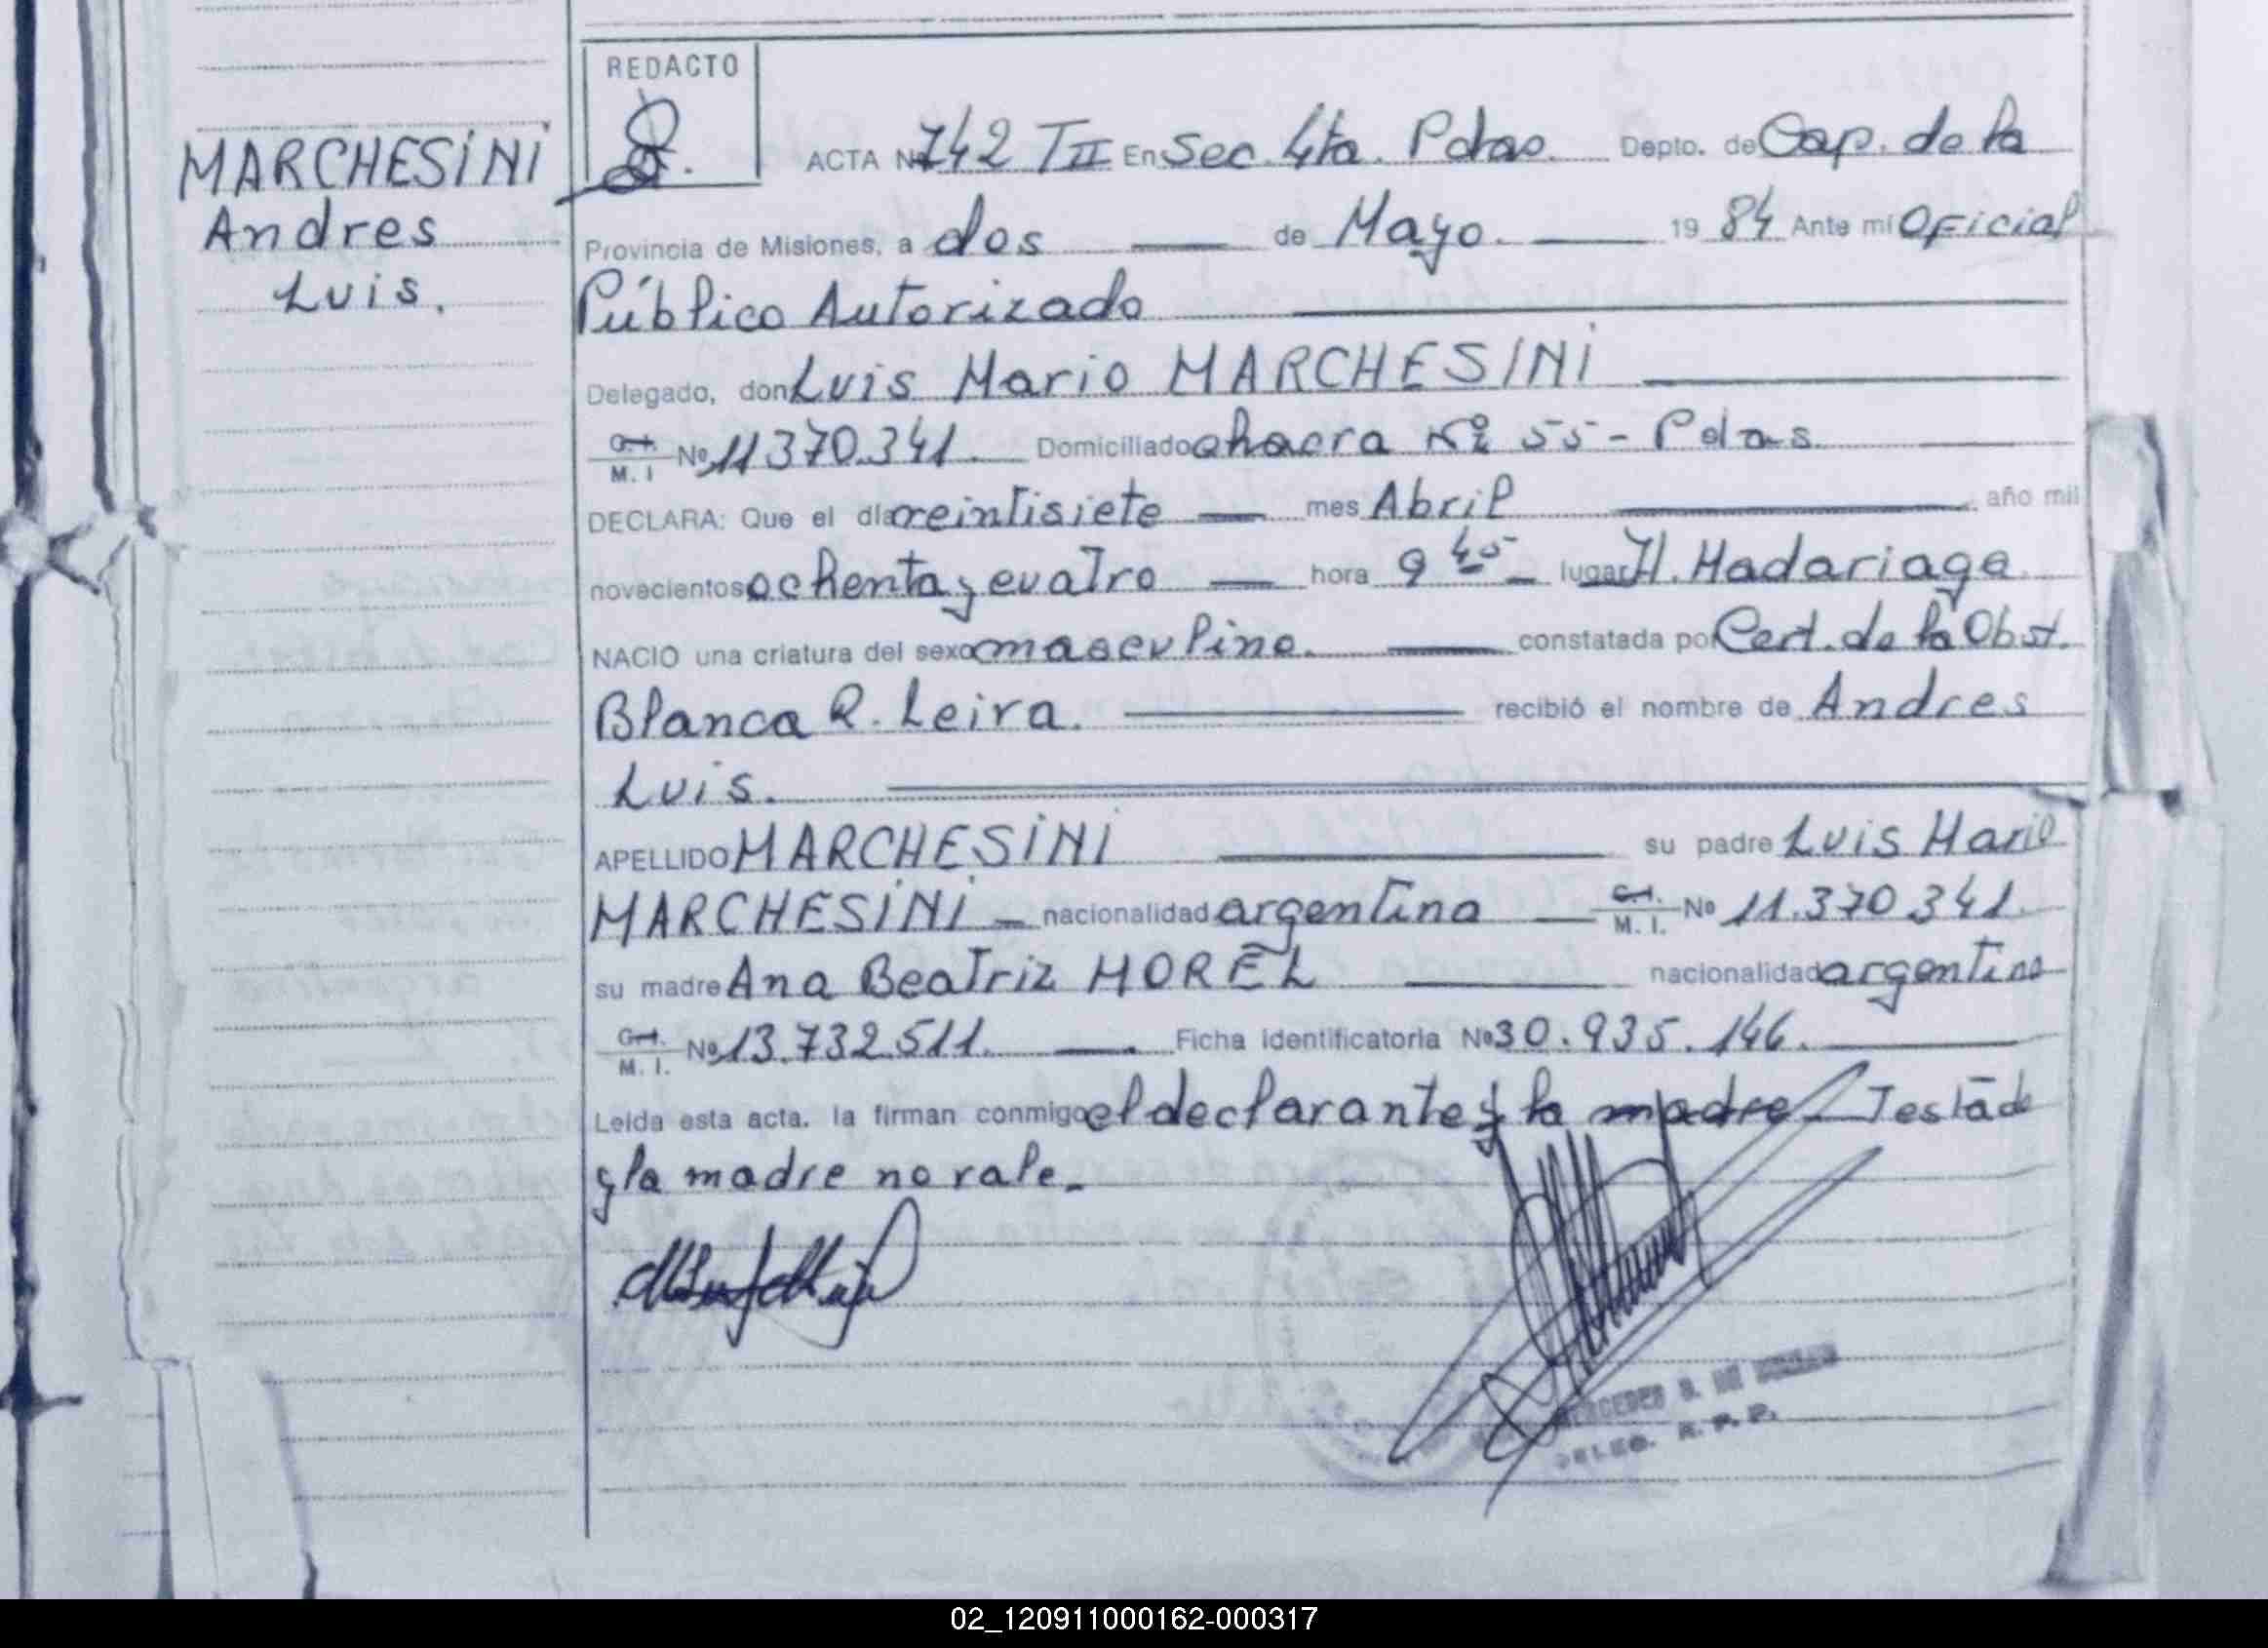 REDACTO
MARCHESINI
Andres
Luis.
ACTA Nº 742 TII En Sec. 4ta. Pdas. Depto. de Cap. de la
Provincia de Misiones, a dos de Mayo. 1984 Ante mí Oficial
Público Autorizado
Delegado, don Luis Mario MARCHESINI
C.I. M.I Nº 11370.341. Domiciliado chacra Nº 55 - Pdas.
DECLARA: Que el día veintisiete mes Abril año mil
novecientos ochenta y cuatro hora 9 45 lugar H. Madariaga
NACIO una criatura del sexo masculino. constatada por Cert. de la Obst.
Blanca R. Leira. recibió el nombre de Andres
Luis.
APELLIDO MARCHESINI su padre Luis Mario
MARCHESINI nacionalidad argentina C.I. M. I. Nº 11.370 341.
su madre Ana Beatriz MOREL nacionalidad argentina
C.I. M. I. Nº 13.732.511. Ficha identificatoria Nº 30.935.146.
Leída esta acta. la firman conmigo el declarante y la madre. Testado
y la madre no vale.
DELEG. R. P. P.
02_120911000162-000317